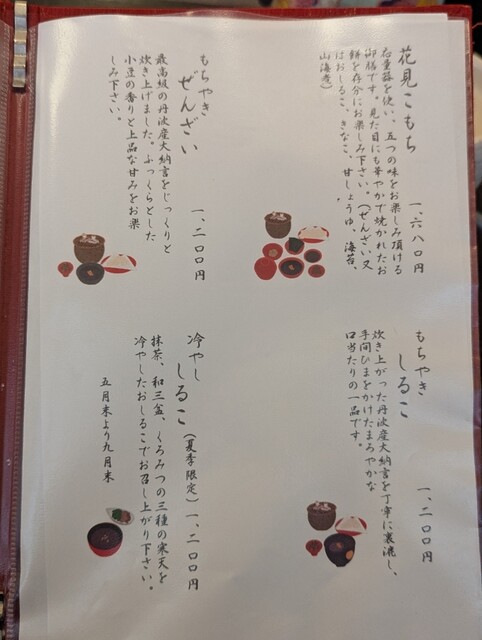 花見こもち
一、六八〇円
応量器を使い、五つの味をお楽しみ頂ける
御膳です。見た目にも華やかで焼かれたお
餅を存分にお楽しみ下さい。(ぜんざい又
はおしるこ、きなこ、甘しょうゆ、海苔、
山海煮)
もちやき
ぜんざい
一、二〇〇円
最高級の丹波産大納言をじっくりと
炊き上げました。ふっくらとした
小豆の香りと上品な甘みをお楽
しみ下さい。
もちやき
しるこ
一、二〇〇円
炊き上がった丹波産大納言を丁寧に裏漉し、
手間ひまをかけたまろやかな
口当たりの一品です。
冷やし
しるこ(夏季限定)一、二〇〇円
抹茶、和三盆、くろみつの三種の寒天を
冷やしたおしるこでお召し上がり下さい。
五月末より九月末